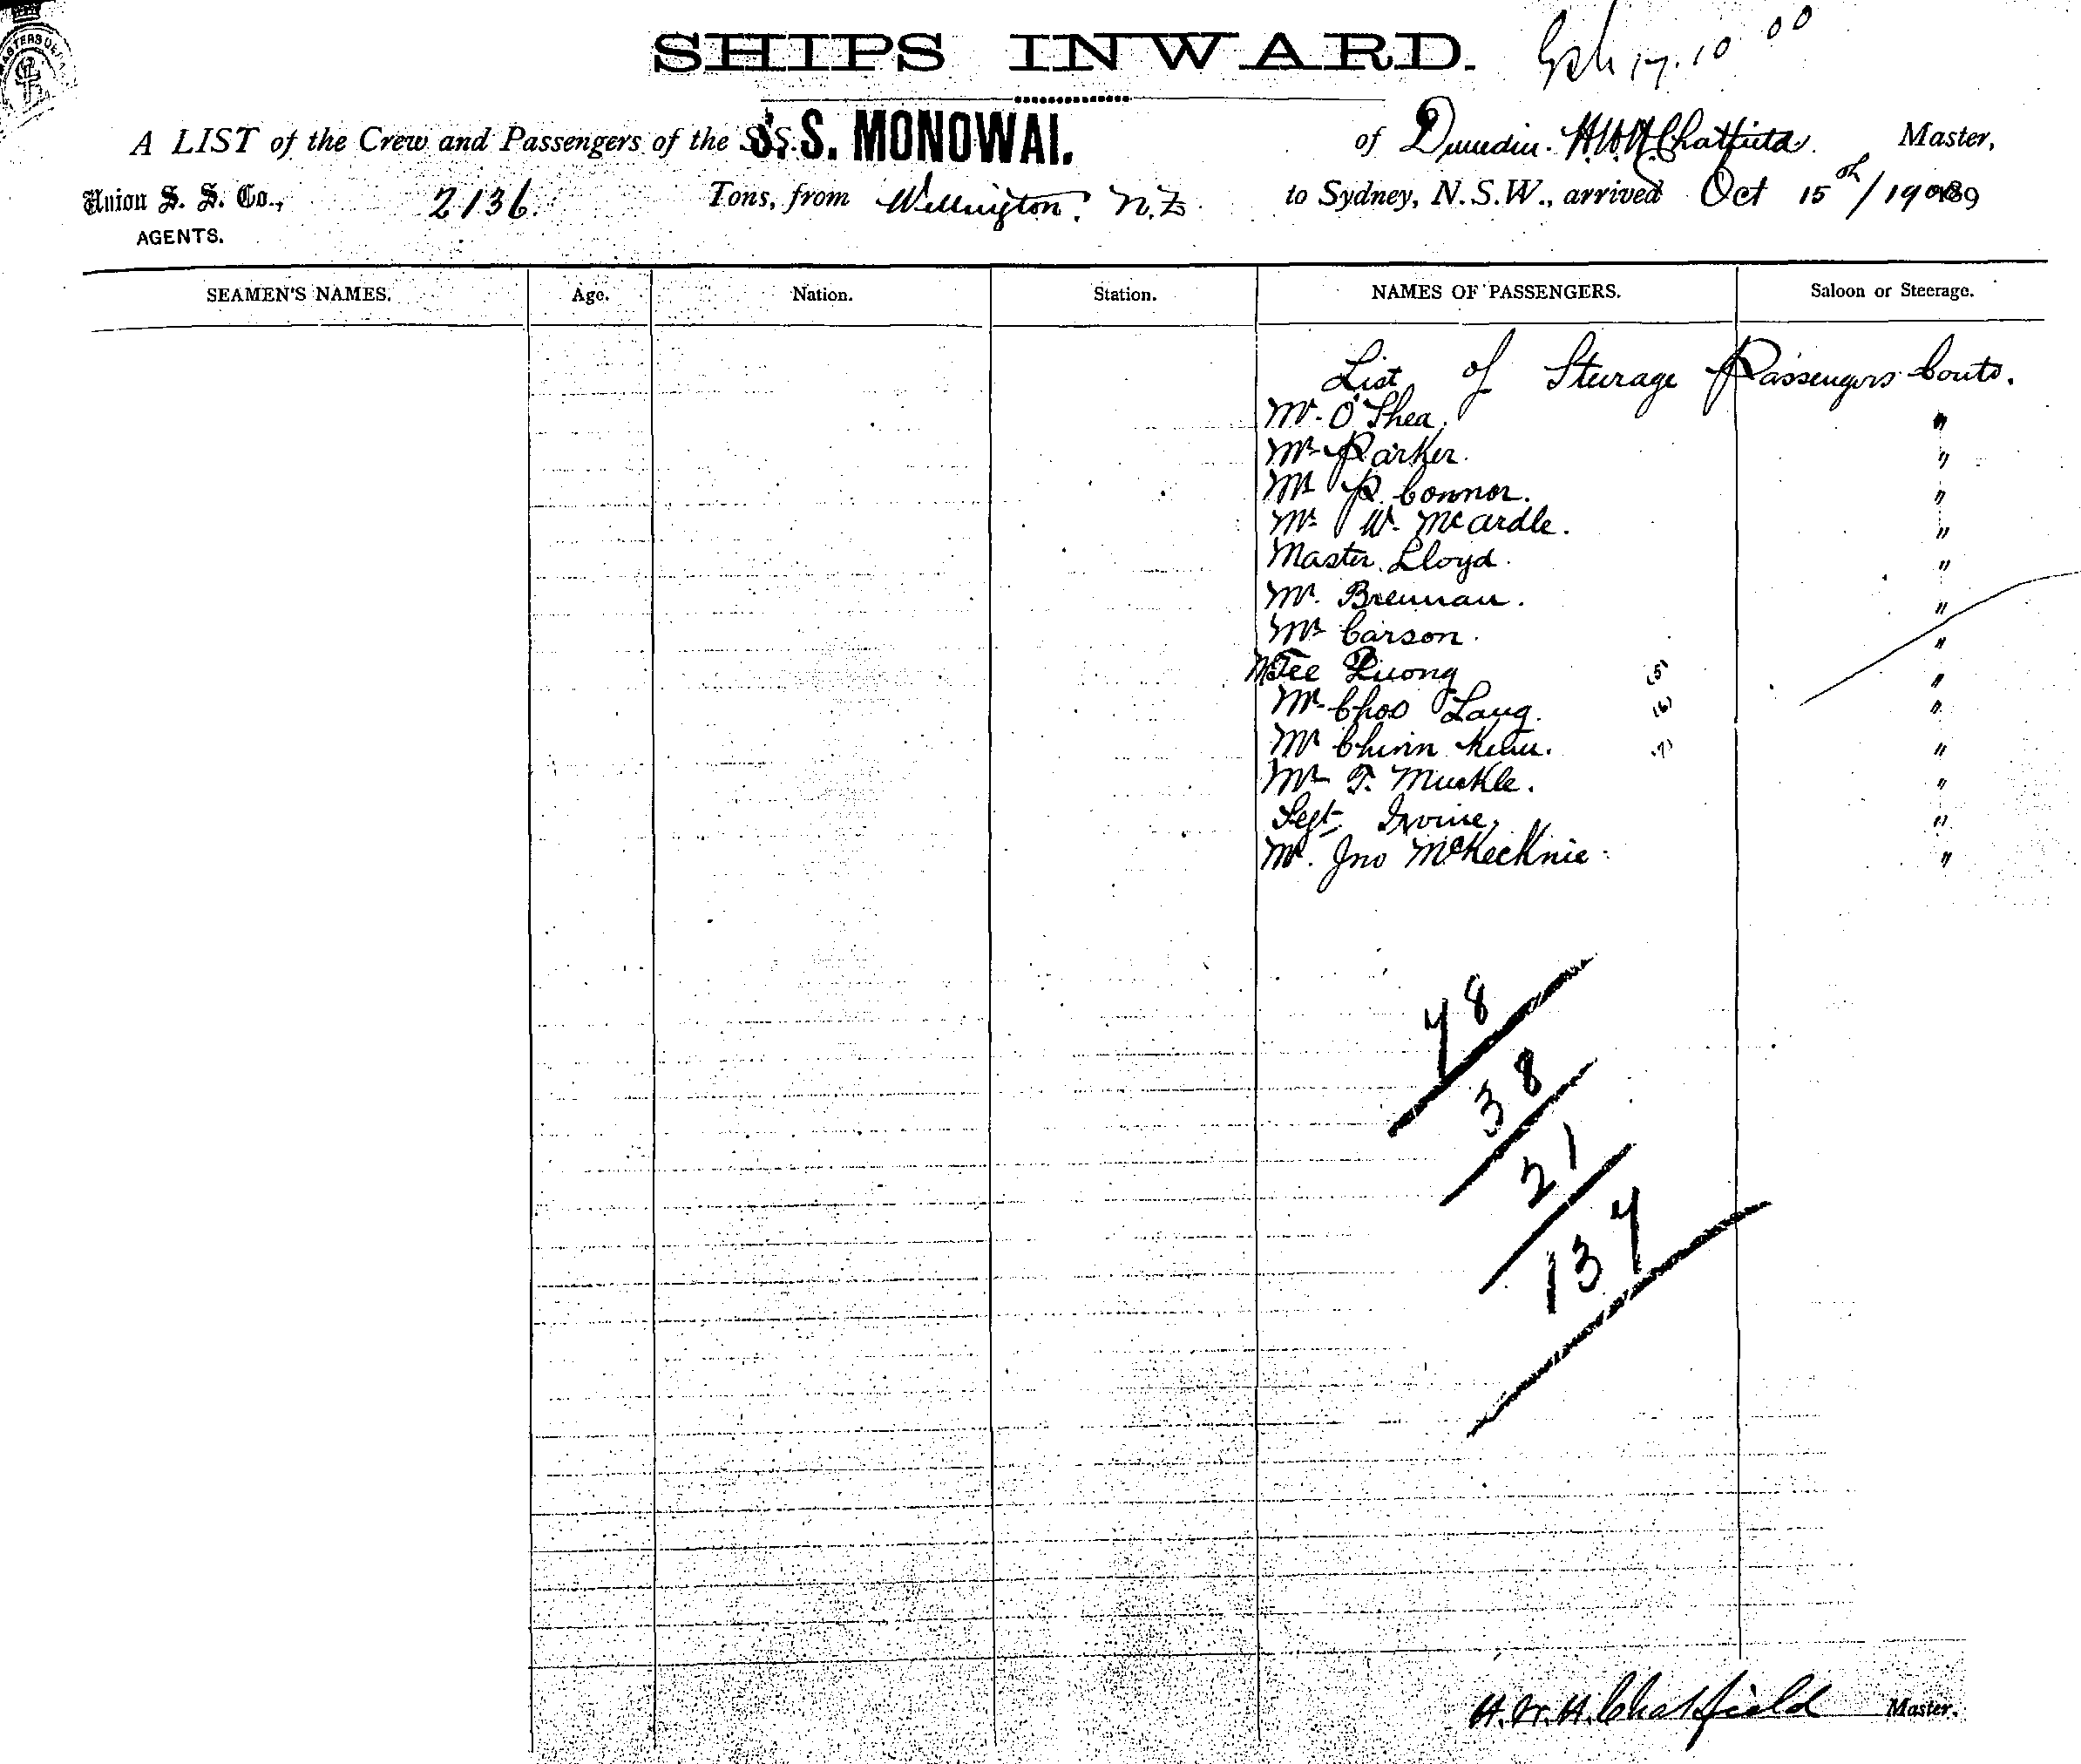 SHIPS INWARD.
17.10 00
A LIST of the Crew and Passengers of the S.S. S.S. MONOWAI. of Dunedin. H.W.H. Chatfield. Master,
Union S. S. Co., 2136. Tons, from Wellington. N.Z. to Sydney, N.S.W., arrived Oct 15th/1900
AGENTS.
SEAMEN'S NAMES. Age. Nation. Station. NAMES OF PASSENGERS. Saloon or Steerage.
List of Steerage Passengers Contd.
Mr. O'Shea. "
Mr Parker. "
Mr P. Connor. "
Mr. W. McArdle. "
Master Lloyd. "
Mr. Brennan. "
Mr Carson. "
Mr Tee Quong (5) "
Mr Choo Lang. (6) "
Mr Chinn (7) "
Mr T. Muckle. "
Segt Irvine. "
Mr. Jno McKecknie. "
78
38
21
137
H.W.H. Chatfield Master.